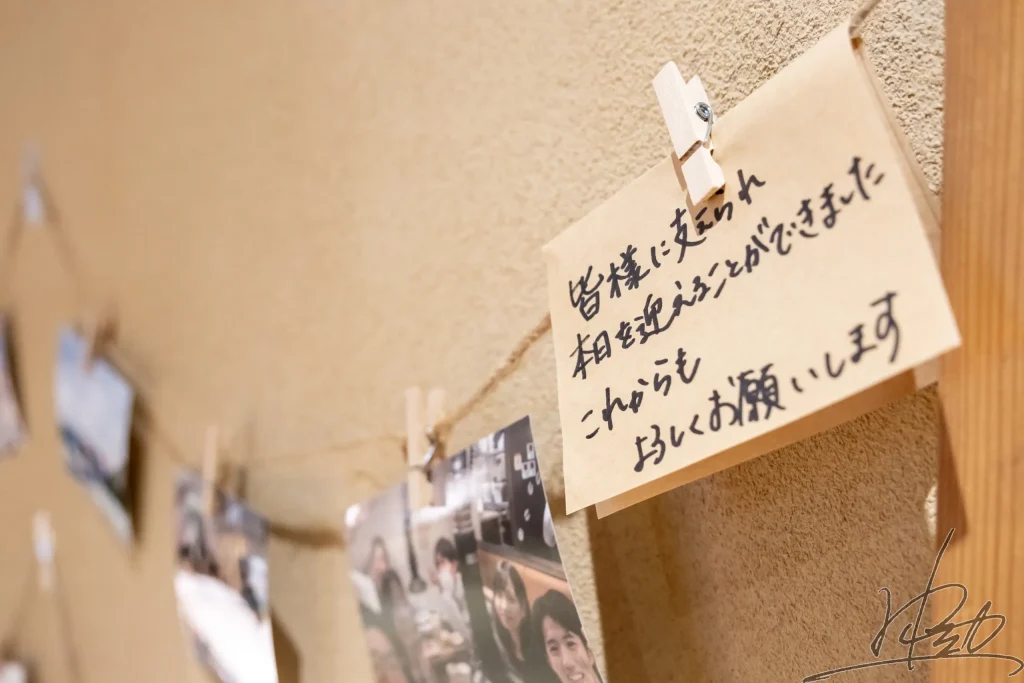 皆様に支えられ
本日を迎えることができました
これからも
よろしくお願いします